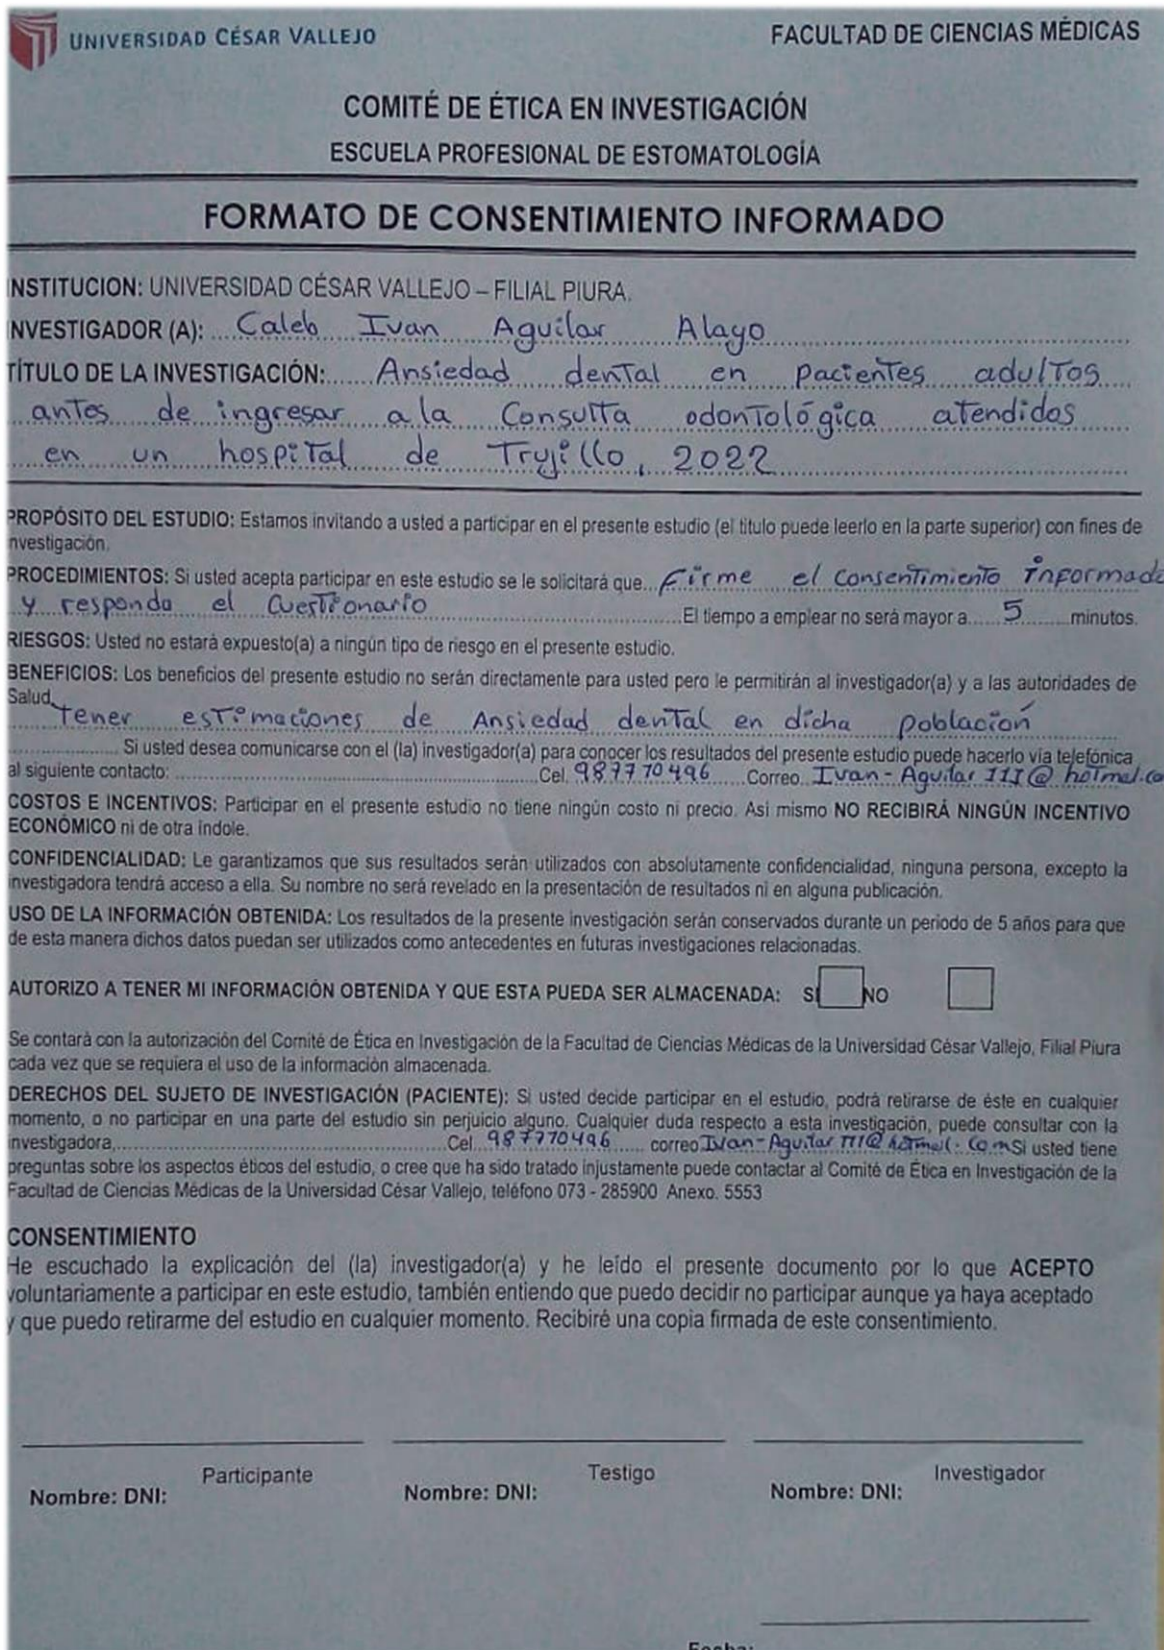 UNIVERSIDAD CÉSAR VALLEJO
FACULTAD DE CIENCIAS MÉDICAS
COMITÉ DE ÉTICA EN INVESTIGACIÓN
ESCUELA PROFESIONAL DE ESTOMATOLOGÍA
FORMATO DE CONSENTIMIENTO INFORMADO
INSTITUCION: UNIVERSIDAD CÉSAR VALLEJO – FILIAL PIURA.
INVESTIGADOR (A): Caleb Ivan Aguilar Alayo
TÍTULO DE LA INVESTIGACIÓN: Ansiedad dental en pacientes adultos
antes de ingresar a la Consulta odontológica atendidos
en un hospital de Trujillo, 2022
PROPÓSITO DEL ESTUDIO: Estamos invitando a usted a participar en el presente estudio (el titulo puede leerlo en la parte superior) con fines de
nvestigación.
PROCEDIMIENTOS: Si usted acepta participar en este estudio se le solicitará que firme el consentimiento informado
y responda el Cuestionario El tiempo a emplear no será mayor a 5 minutos.
RIESGOS: Usted no estará expuesto(a) a ningún tipo de riesgo en el presente estudio.
BENEFICIOS: Los beneficios del presente estudio no serán directamente para usted pero le permitirán al investigador(a) y a las autoridades de
Salud
tener estimaciones de Ansiedad dental en dicha población
Si usted desea comunicarse con el (la) investigador(a) para conocer los resultados del presente estudio puede hacerlo vía telefónica
al siguiente contacto: Cel. 987770496 Correo. Ivan-Aguilar III@ hotmel.co
COSTOS E INCENTIVOS: Participar en el presente estudio no tiene ningún costo ni precio. Así mismo NO RECIBIRÁ NINGÚN INCENTIVO
ECONÓMICO ni de otra índole.
CONFIDENCIALIDAD: Le garantizamos que sus resultados serán utilizados con absolutamente confidencialidad, ninguna persona, excepto la
investigadora tendrá acceso a ella. Su nombre no será revelado en la presentación de resultados ni en alguna publicación.
USO DE LA INFORMACIÓN OBTENIDA: Los resultados de la presente investigación serán conservados durante un periodo de 5 años para que
de esta manera dichos datos puedan ser utilizados como antecedentes en futuras investigaciones relacionadas.
AUTORIZO A TENER MI INFORMACIÓN OBTENIDA Y QUE ESTA PUEDA SER ALMACENADA: SI NO
Se contará con la autorización del Comité de Ética en Investigación de la Facultad de Ciencias Médicas de la Universidad César Vallejo, Filial Piura
cada vez que se requiera el uso de la información almacenada.
DERECHOS DEL SUJETO DE INVESTIGACIÓN (PACIENTE): Si usted decide participar en el estudio, podrá retirarse de éste en cualquier
momento, o no participar en una parte del estudio sin perjuicio alguno. Cualquier duda respecto a esta investigación, puede consultar con la
investigadora, Cel. 987770496 correo Ivan-Aguilar III@ hotmel.com Si usted tiene
preguntas sobre los aspectos éticos del estudio, o cree que ha sido tratado injustamente puede contactar al Comité de Ética en Investigación de la
Facultad de Ciencias Médicas de la Universidad César Vallejo, teléfono 073 - 285900 Anexo. 5553
CONSENTIMIENTO
He escuchado la explicación del (la) investigador(a) y he leído el presente documento por lo que ACEPTO
voluntariamente a participar en este estudio, también entiendo que puedo decidir no participar aunque ya haya aceptado
y que puedo retirarme del estudio en cualquier momento. Recibiré una copia firmada de este consentimiento.
Participante Testigo Investigador
Nombre: DNI: Nombre: DNI: Nombre: DNI:
Fecha: